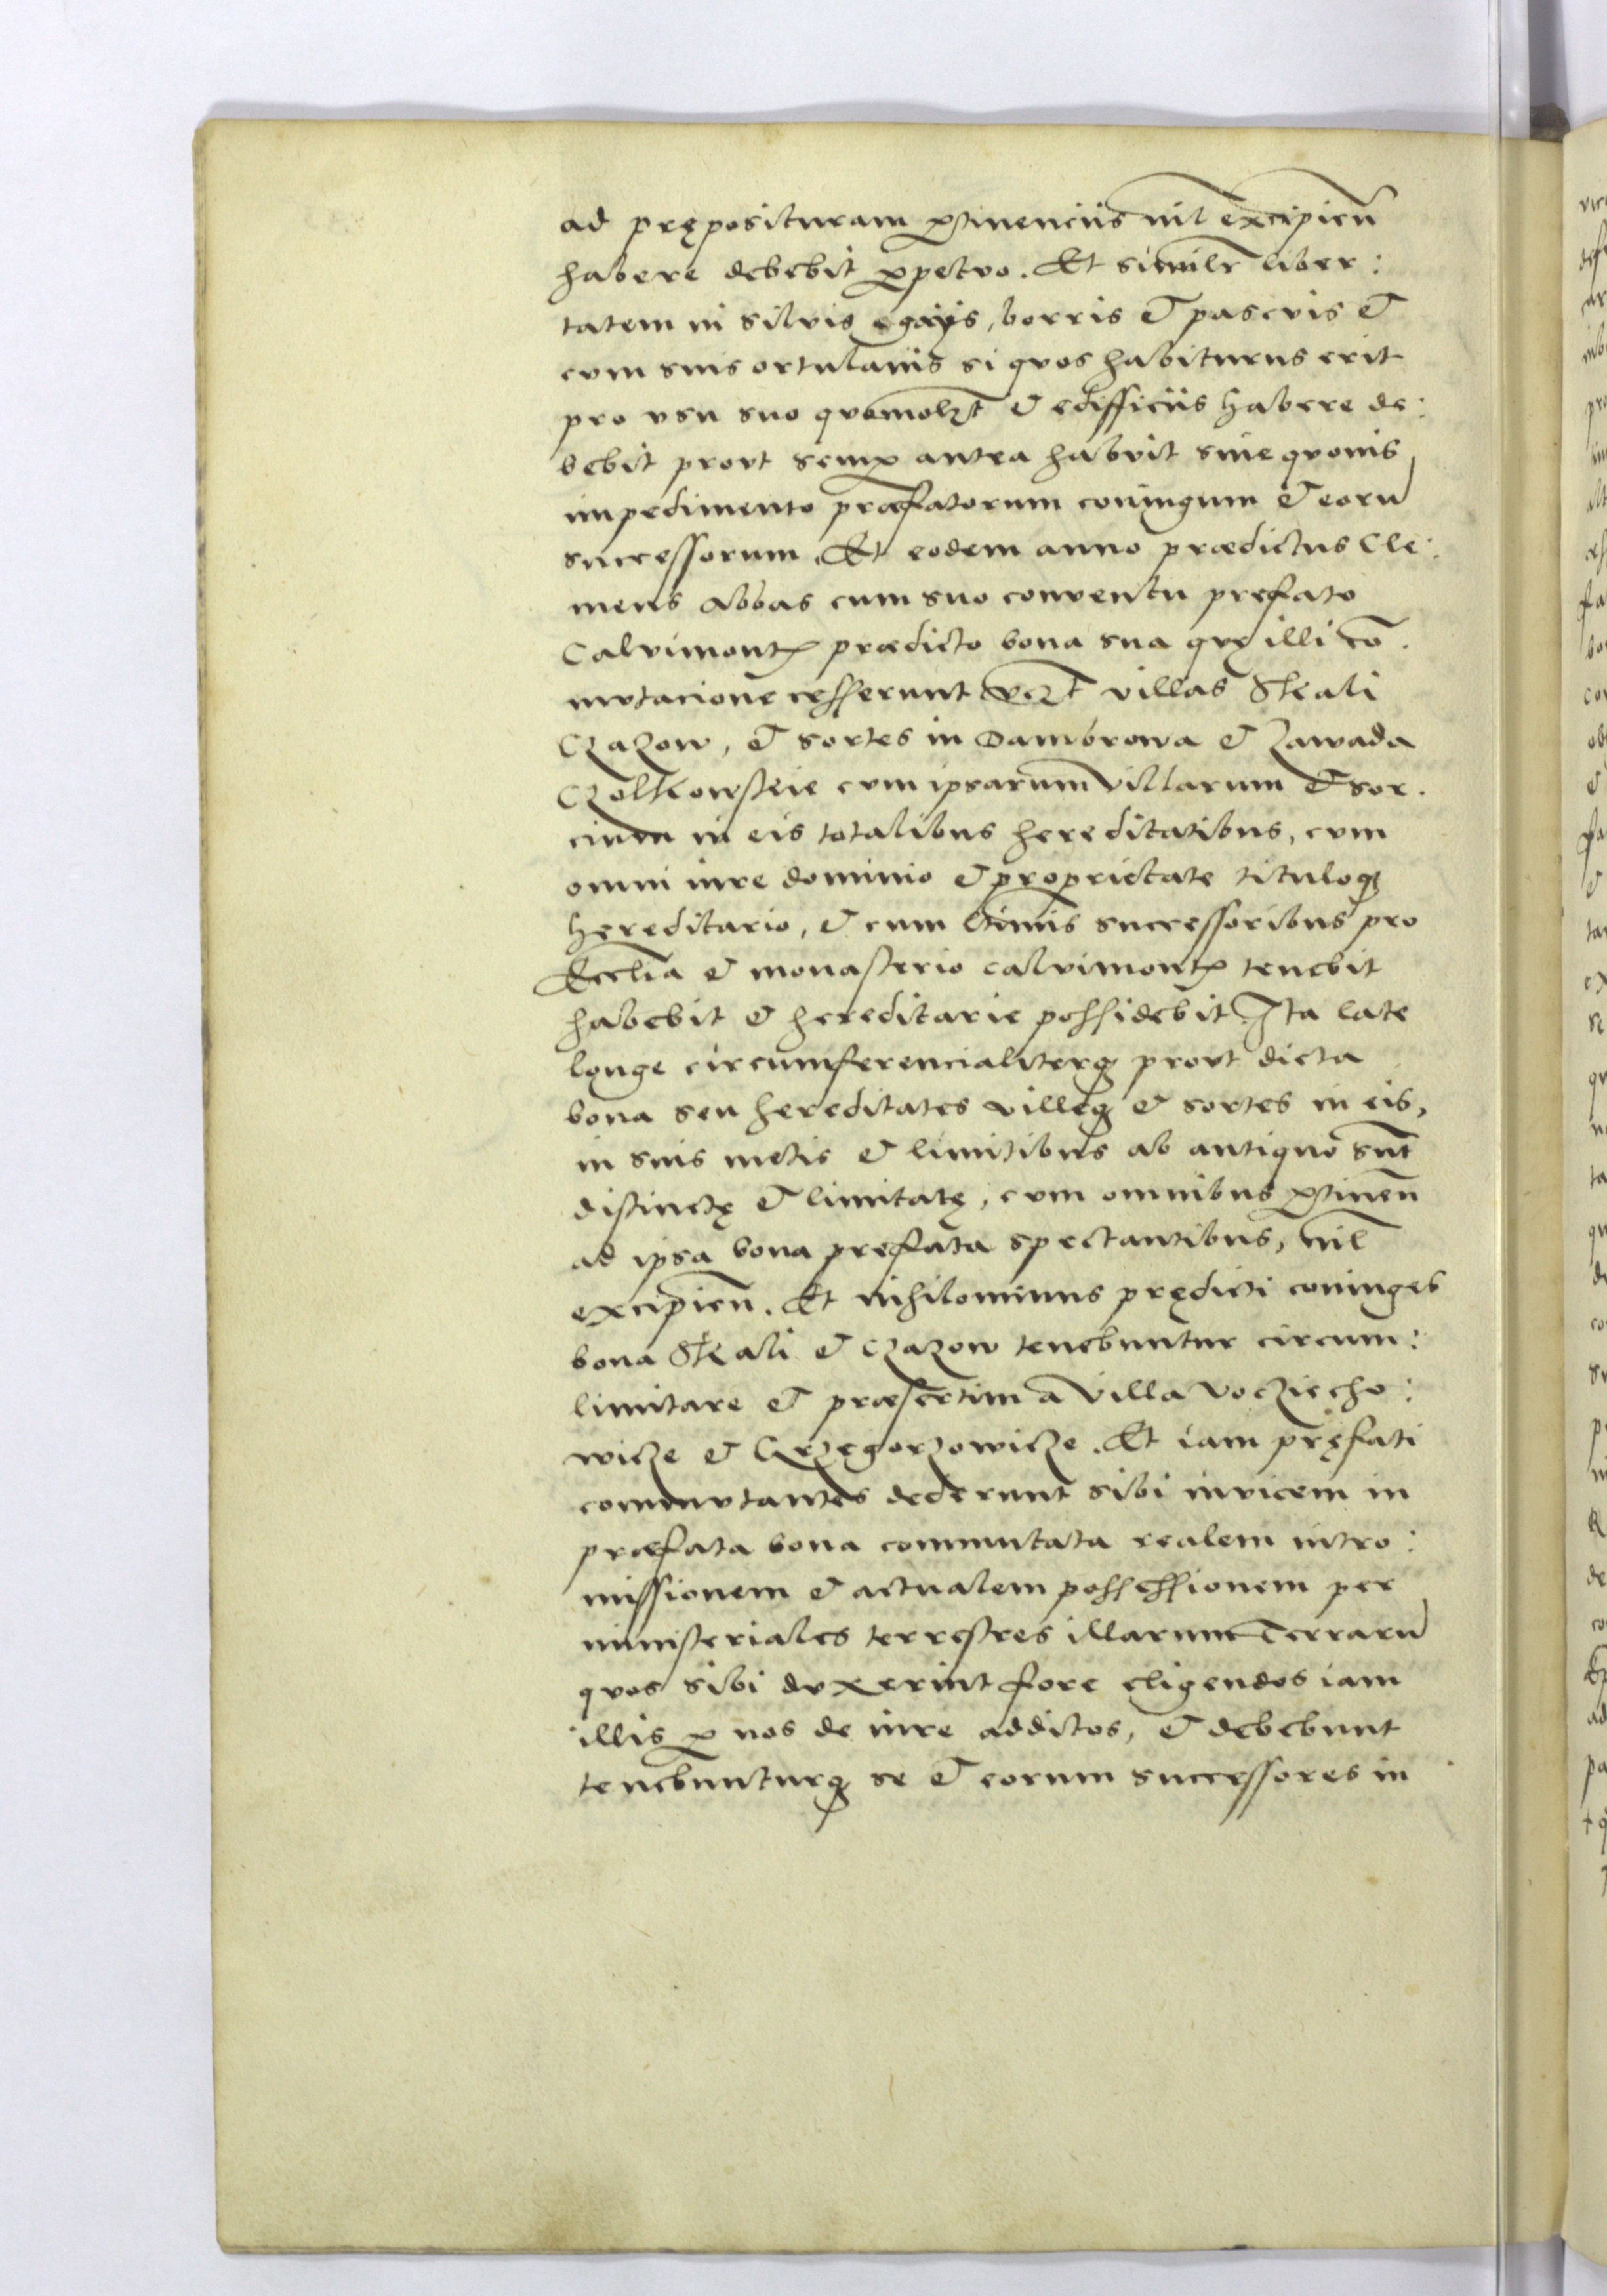 ad pręposituram ꝑtinenciis nil excipieñ
habere debebit ꝑpetuo. Et similr̃ liber:
tatem in siluis gaijs, borris et pascuis et
cum suis ortulanis si quos habiturus erit
pro vsu suo quomolzt̃ et edifficiis habere de:
bebit prout semꝑ antea habuit sine quouis
impedimento præfatorum coniugum et eorũ
successorum. Et eodem anno prædictus Cle:
mens Abbas cum suo conuentu prefato
Caluimontꝭ prædicto bona sua quę illi cõ.
mutacione cesserunt vczt̃ villas Skali
Czazow, et sortes in Dambrowa et Zawada
Czolkowskie cum ipsarum villarum et sor.
cium in eis totalibus hereditatibus, cum
omni iure dominio et proprietate tituloqꝫ
hereditario, et cum ltimis successoribus pro
Ecclia et monasterio caluimontꝭ tenebit
habebit et hereditarie possidebit. Ita late
longe circumferencialiterqꝫ prout dicta
bona seu hereditates villeqꝫ et sortes in eis,
in suis metis et limitibus ab antiquo sunt̃
distinctę et limitatę, cum omnibus ꝑtineñ
ad ipsa bona prefata spectantibus, nil
excipieñ. Et nihilominus prędicti coniuges
bona Skali et Czazow tenebuntur circum:
limitare et præsertim a villa Vocziecho:
wicze et Grzegorzowicze. Et iam pręfati
commutantes dederunt sibi inuicem in
præfata bona commutata realem intro:
missionem et actualem possessionem per
ministeriales terrestres illarum Terrarũ
quos sibi duxerint fore eligendos iam
illis ꝑ nos de iure additos, et debebunt
tenebunturqꝫ se et eorum successores in